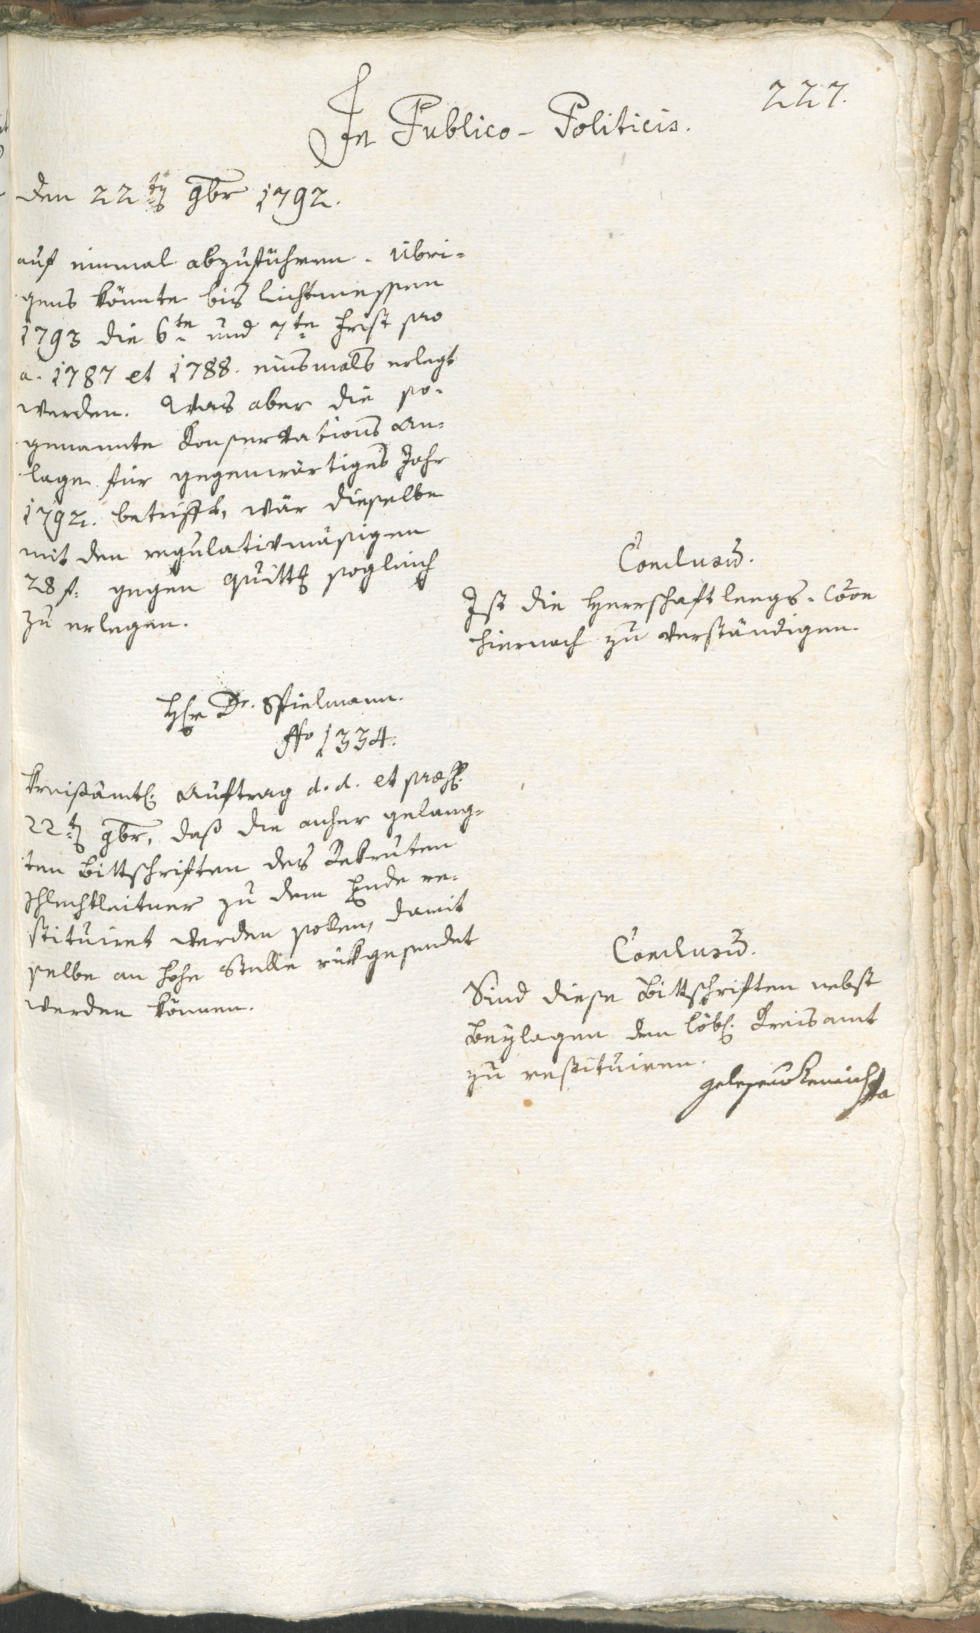 227.
In Publico-Politicis.
den 22ten 9br 1792.
auf einmal abzuführen. Übri-
gens könnte bis Lichtmessen
1793 die 6te und 7te Frist pro
a. 1787 et 1788. einsmals erlegt
werden. Was aber die so-
genannte Konservations An-
lage für gegenwärtiges Jahr
1792. betrifft, wär dieselbe
mit den regulativmäsigen
28 f. gegen Quittg sogleich
zu erlegen.
Conclusum.
Ist die Herrschaftlengs-Coon
hiernach zu verständigen.
Hr Dr. Spielmann.
No 1334.
Kreisämtl. Auftrag d. d. et praes.
22ten 9br, daß die anher gelang-
ten Bittschriften des Rekruten
Schlechtleitner zu dem Ende re-
stituiret werden sollen, damit
selbe an hohe Stelle rückgesendet
werden können.
Conclusum.
Sind diese Bittschriften nebst
Beylagen dem löbl. Kreisamt
zu restituiren.
gelesen